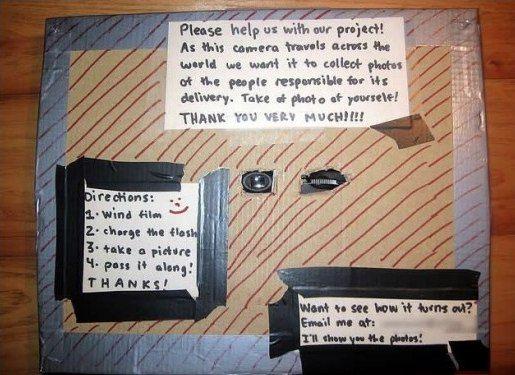 Please help us with our project!
As this camera travels across the
world we want it to collect photos
of the people responsible for its
delivery. Take a photo of yourself!
THANK YOU VERY MUCH!!!!
Directions:
1. Wind film
2. charge the flash
3. take a picture
4. pass it along!
THANKS!
Want to see how it turns out?
Email me at:
I'll show you the photos!